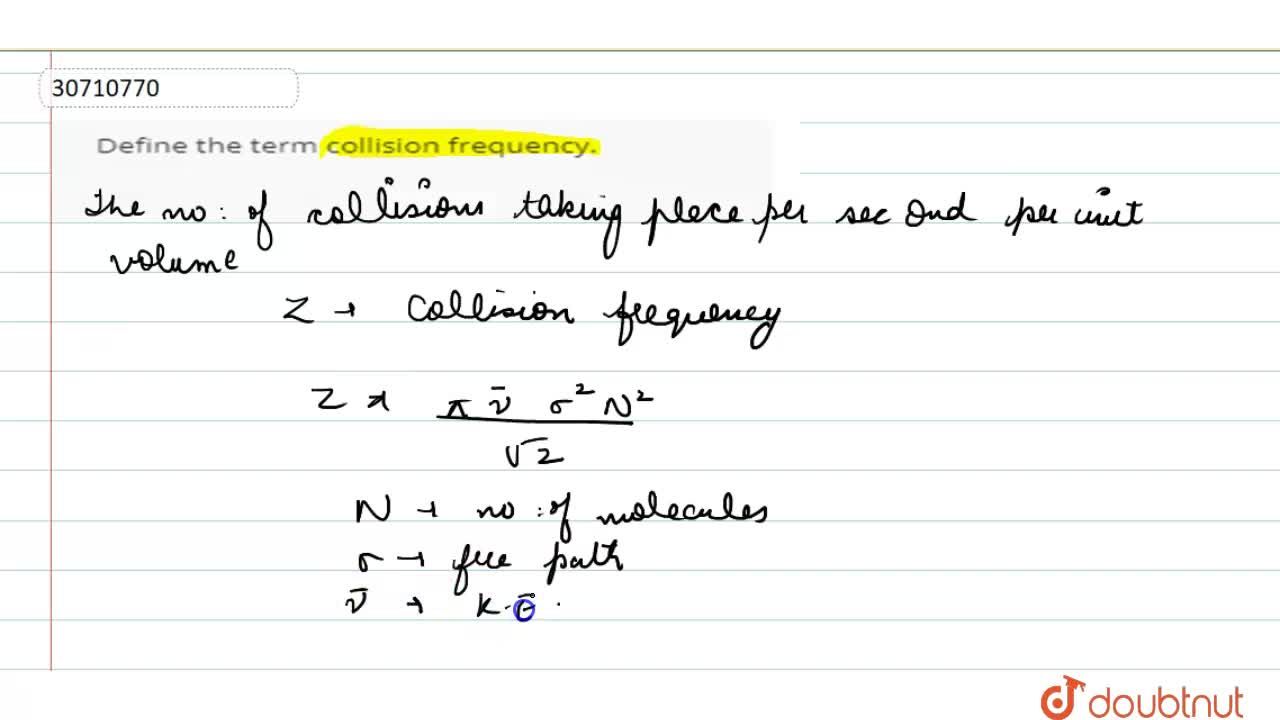 30710770
Define the term collision frequency.
The no: of collisions taking place per second per unit
volume
Z → Collision frequency
Z π ν̄ σ² N²
√2
N → no: of molecules
σ → free path
ν̄ → K.
doubtnut